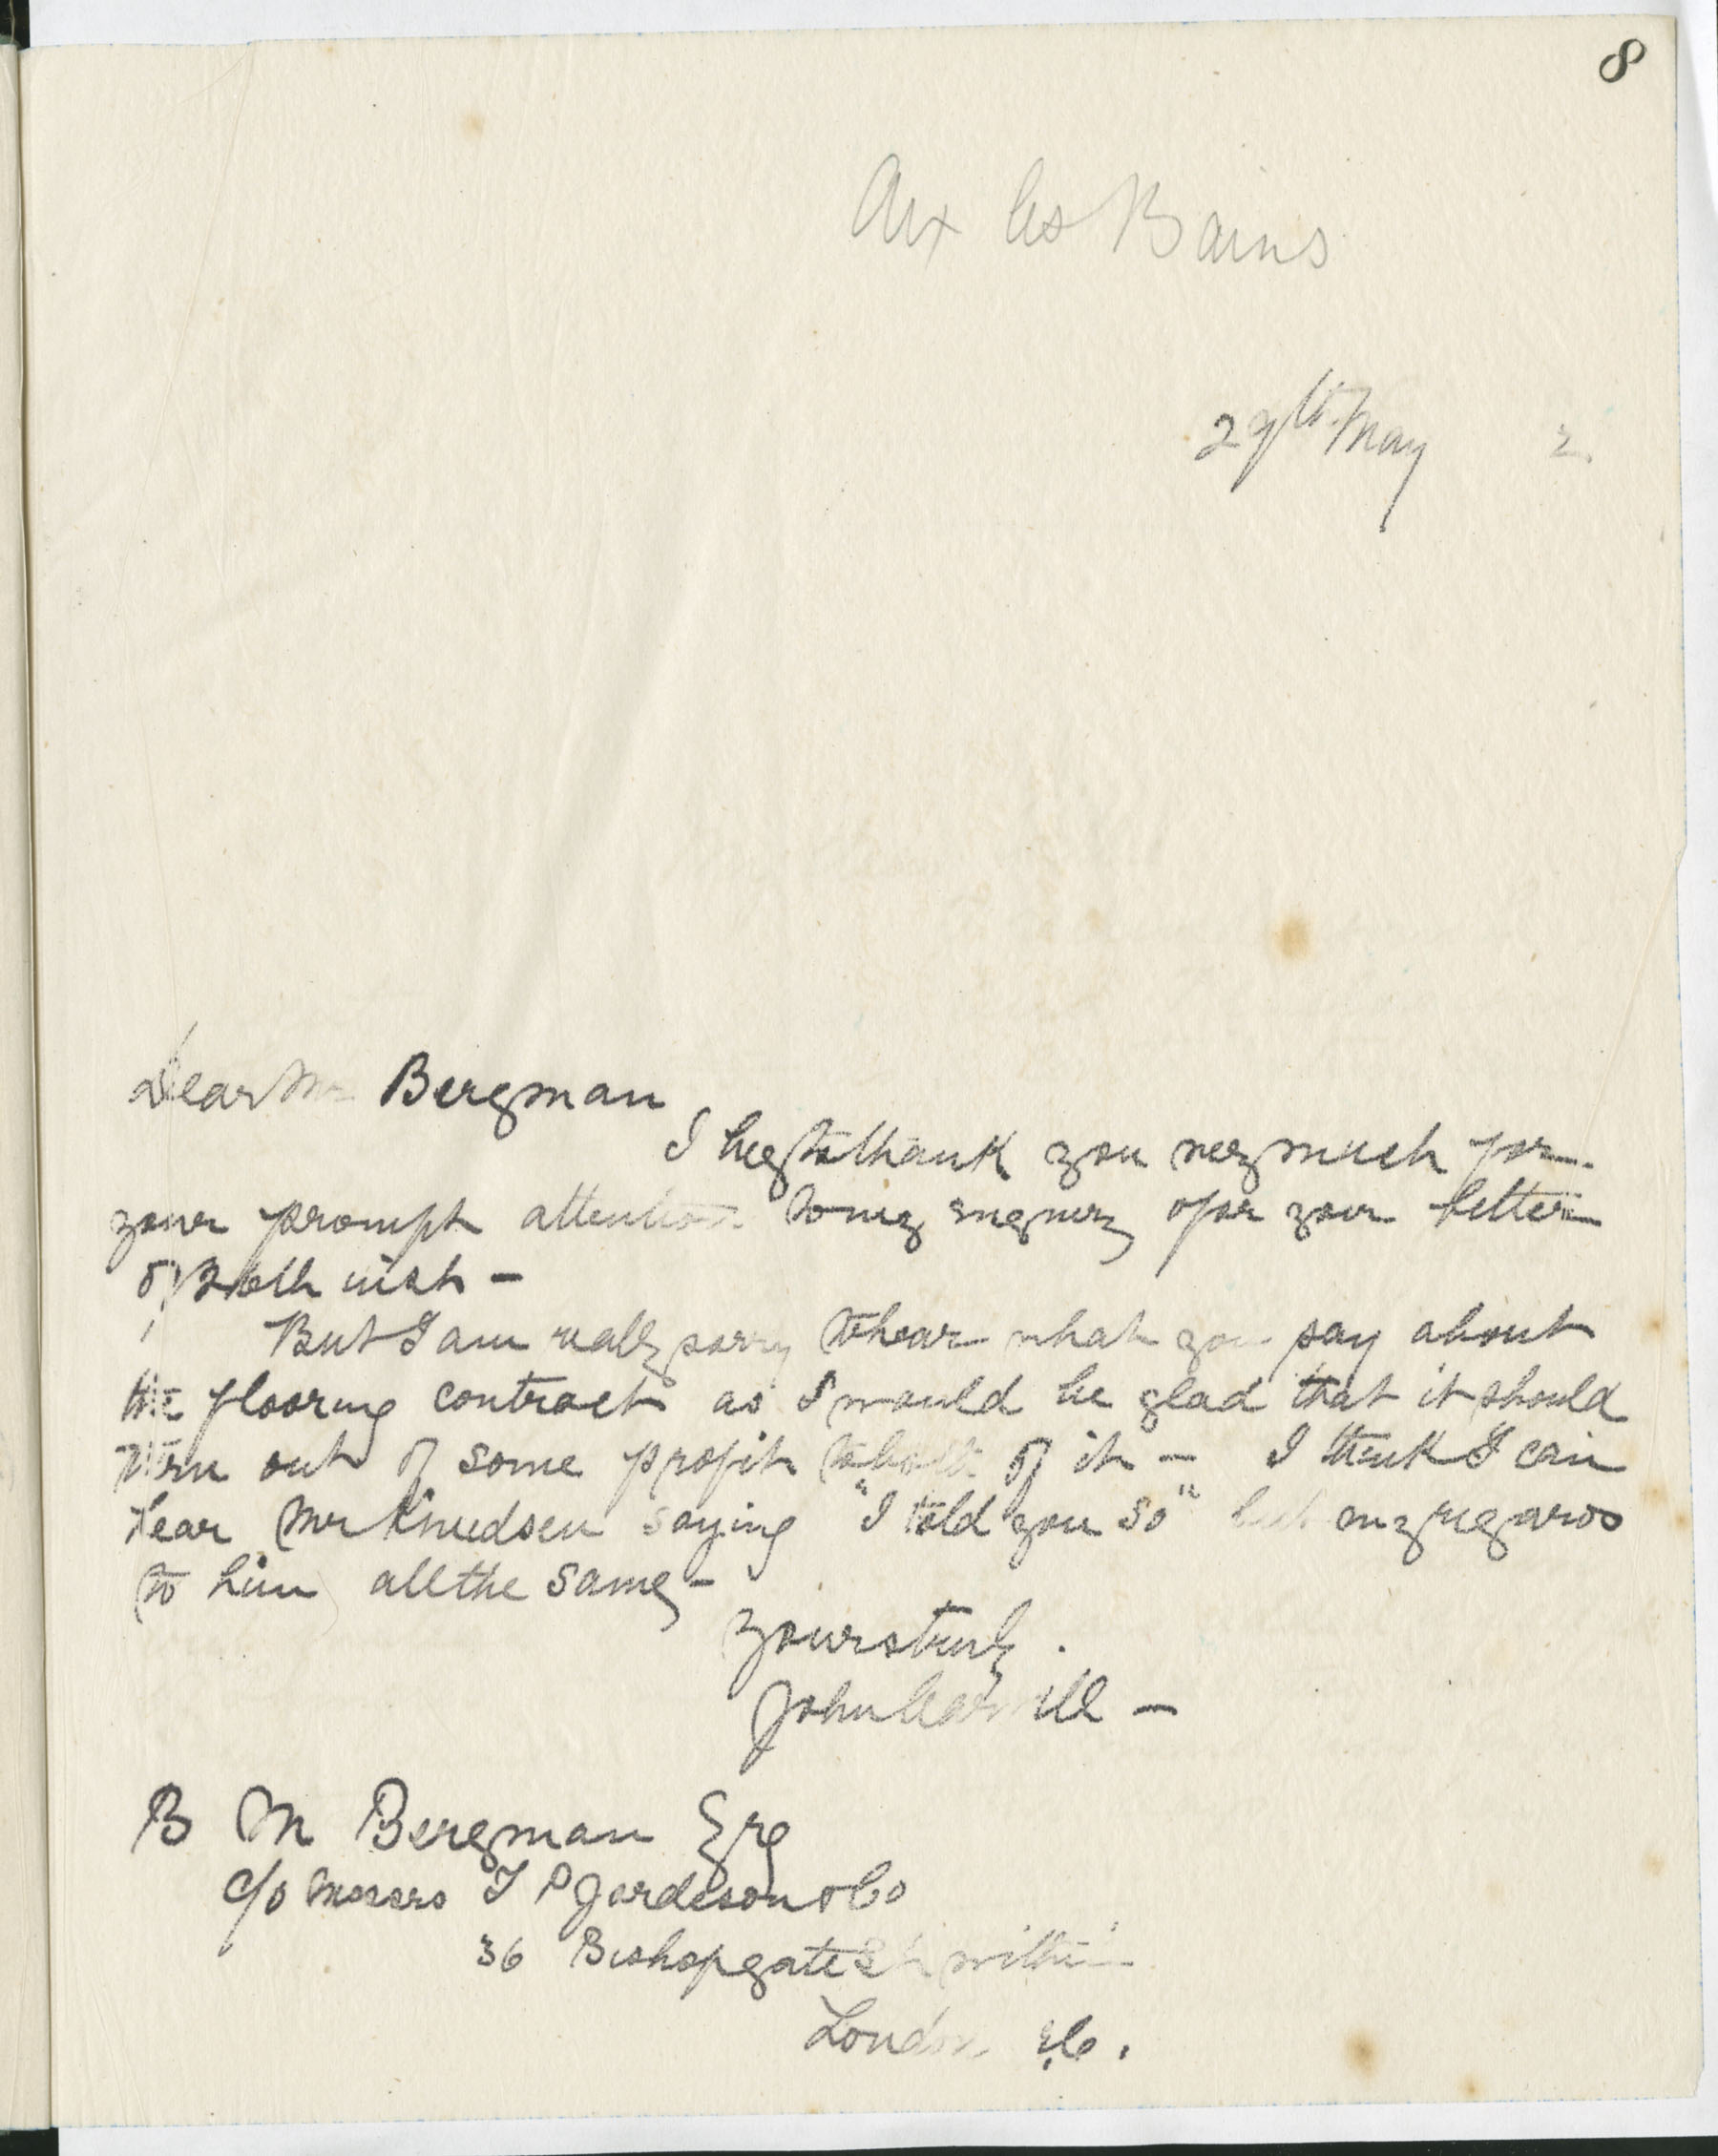 8
Aix les Bains
29th May 2
Dear Mr Bergman
I beg to thank you very much for
your prompt attention to my enquiry & for your letter
of 26th inst -
But I am really sorry to hear what you say about
the flooring contract as I would be glad that it should
turn out of some profit to both of it - I think I can
hear Mr Knudsen saying "I told you so" but my regards
to him all the same -
Yours truly.
John -
B M Bergman Esq
c/o Messrs T P Jordeson & Co
36 Bishopgate St within
London E.C.